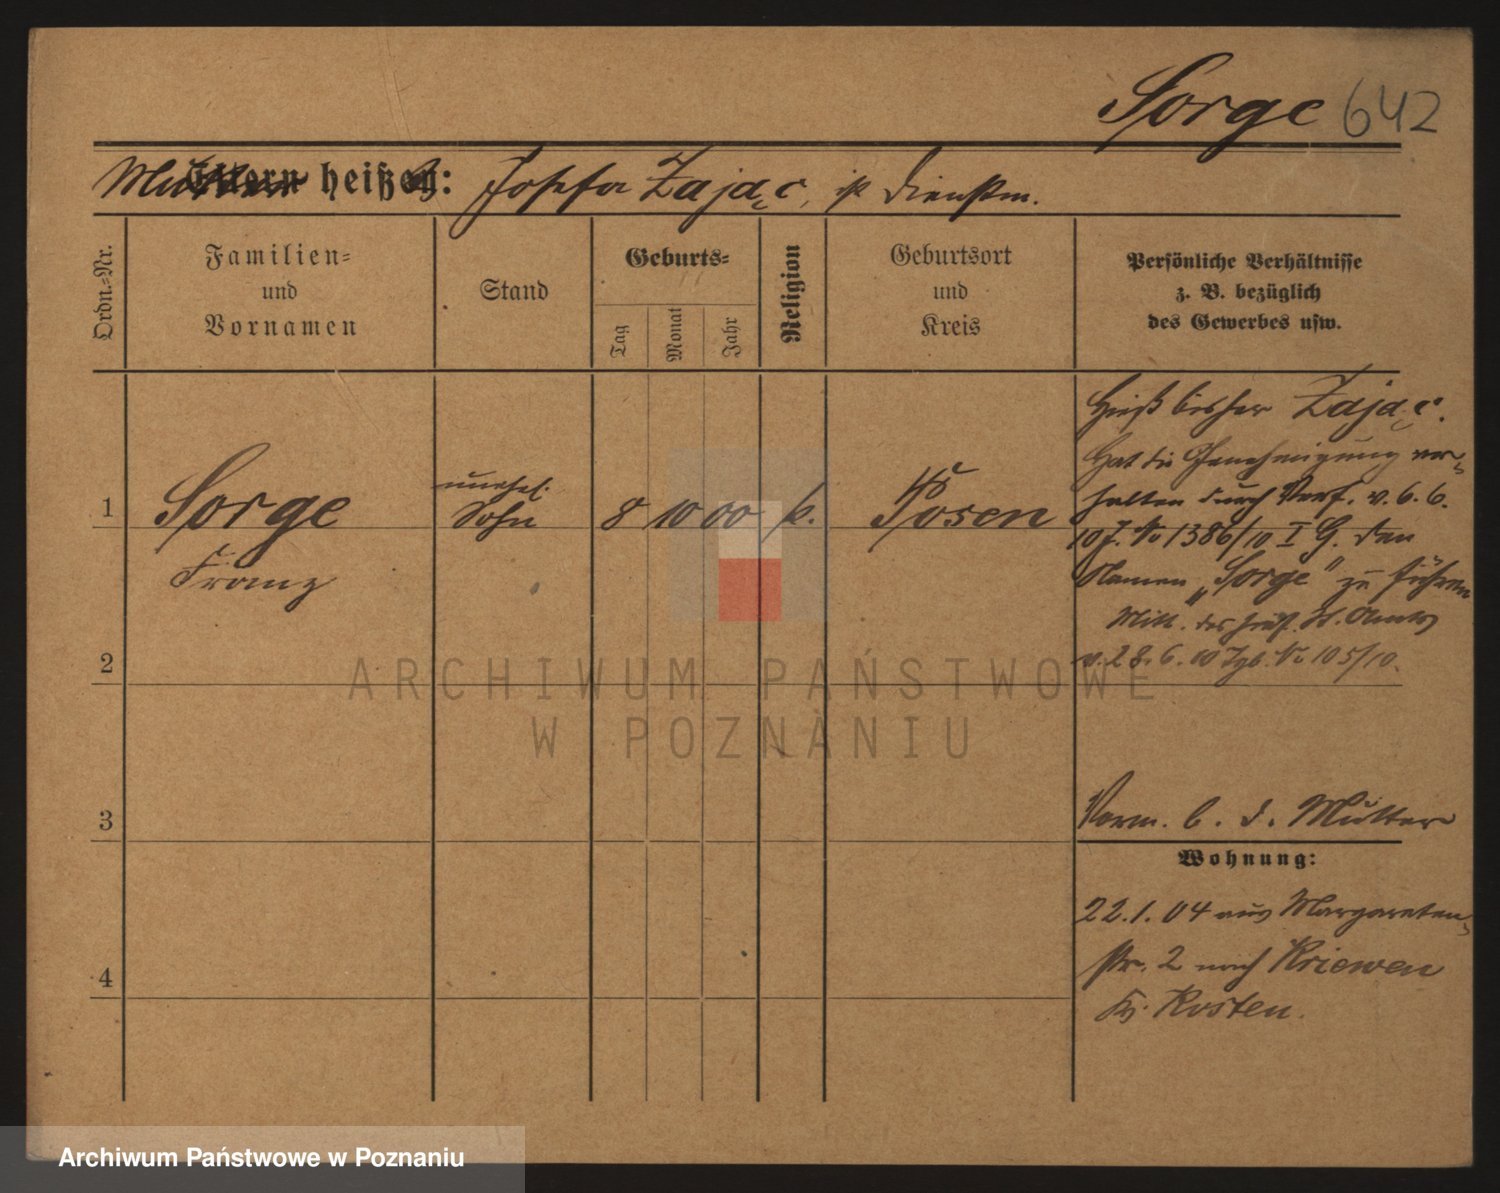 Sorge 642
Mutter heißt: Josefa Zając, ist Dienstm.
Ordn.-Nr.
Familien-
und
Vornamen
Stand
Geburts-
Tag
Monat
Jahr
Religion
Geburtsort
und
Kreis
Persönliche Verhältnisse
z. B. bezüglich
des Gewerbes usw.
1
Sorge
Franz
unehel.
Sohn
8 10 00 k.
Posen
Hieß bisher Zając.
Hat die Genehmigung er-
halten durch Verf. v. 6. 6.
10 J. No 1386/10 I G. den
Namen „Sorge" zu führen
Mitt. des St. Amts
v. 28. 6. 10 Tgb. No 105/10.
2
3
4
Vorm. b. d. Mutter
Wohnung:
22. 1. 04 aus Margareten-
str. 2 nach Kriewen
Kr. Kosten.
ARCHIWUM PAŃSTWOWE
W POZNANIU
Archiwum Państwowe w Poznaniu